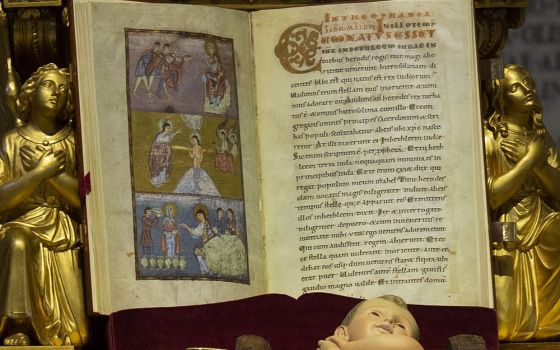 IN THEOPHANIA
CUM NATUS ESSET
IHS IN BETHLEEM IUDAE IN
diebus herodis regis ecce magi abo
riente uenerunt hierosolimam di
centes. Ubi est qui natus est rex iudeorum
Uidimus enim stellam eius in oriente & ueni
mus adorare eum. Audiens herodes rex turba
tus est. & omnis hierosolima cum illo. Et con
gregans omnes principes sacerdotum & scri
bas populi sciscitabatur ab eis ubi xpc nasce
retur. At illi dixerunt ei. In bethleem iudae.
Sic enim scriptum est per prophetam. Et tu beth
leem terra iuda nequaquam minima es in
principibus iuda. Ex te enim exiet dux qui
regat populum meum israhel. Tunc herodes
clam uocatis magis diligenter didicit ab eis
tempus stelle que apparuit eis. Et mittens
illos in bethleem dixit. Ite & interrogate
diligenter de puero. & cum inueneritis re
nuntiate mihi ut & ego ueniens adorem eum
Qui cum audissent regem abierunt. Et ec
ce stella quam uiderant in oriente ante ce
debat eos usque dum ueniens staret supra
ubi erat puer. Uidentes autem stellam gauisi
gaudio magno ualde